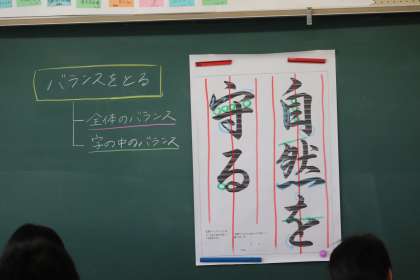 バランスをとる
全体のバランス
字の中のバランス
自然を
守る